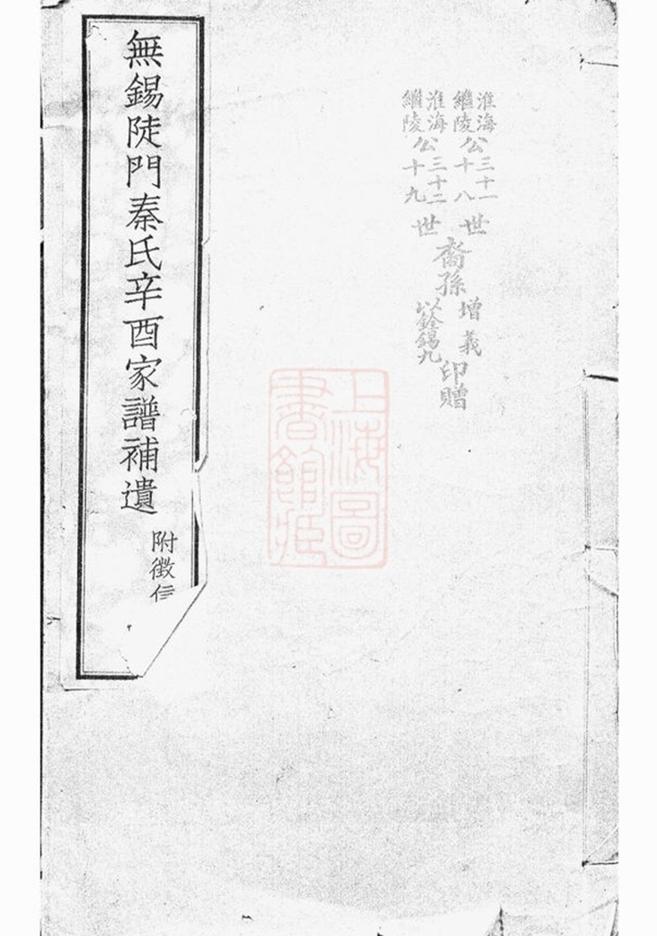 淮海公三十一世
繼陵公十八世
淮海公三十二世
繼陵公十九世
裔孫
增義
以銓錫九
印贈
無錫陡門秦氏辛酉家譜補遺
附徵信
上海圖書館藏